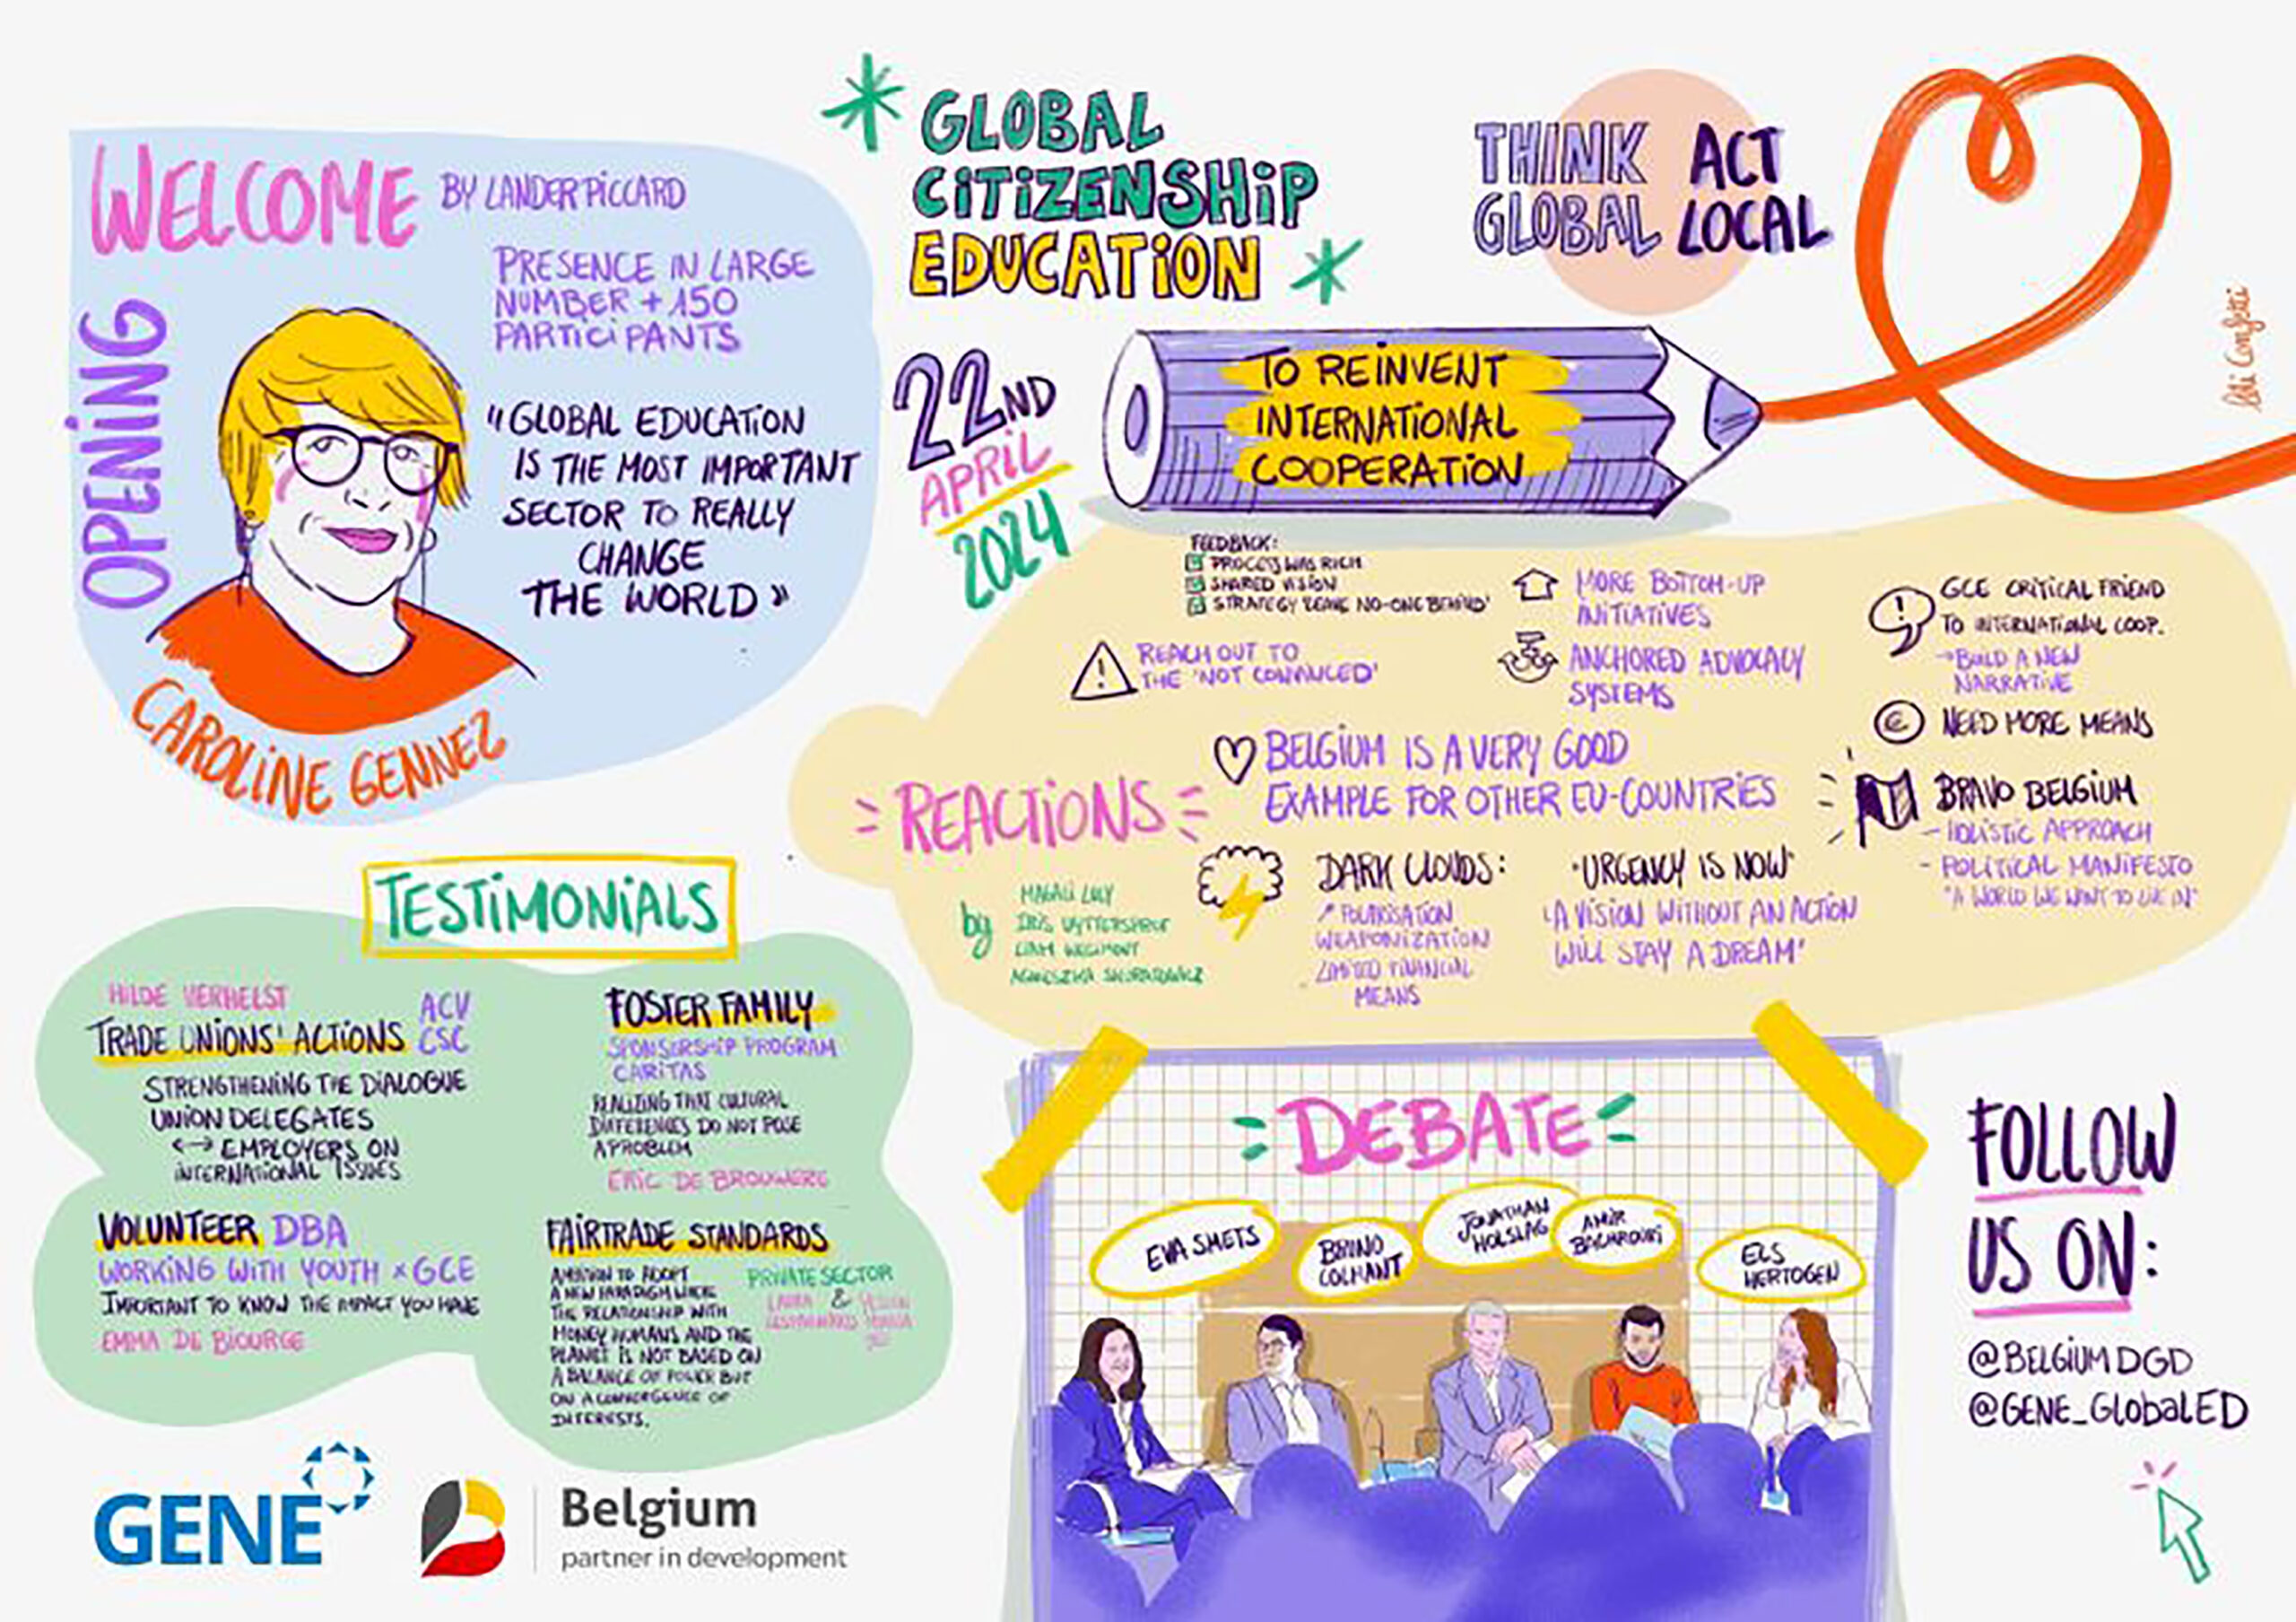 WELCOME BY LANDER PICCARD
OPENING
PRESENCE IN LARGE
NUMBER + 150
PARTICIPANTS
"GLOBAL EDUCATION
IS THE MOST IMPORTANT
SECTOR TO REALLY
CHANGE
THE WORLD"
CAROLINE GENNEZ
GLOBAL
CITIZENSHIP
EDUCATION
22ND
APRIL
2024
TO REINVENT
INTERNATIONAL
COOPERATION
THINK GLOBAL
ACT LOCAL
FEEDBACK:
PROCESS WAS RICH
SHARED VISION
STRATEGY 'LEAVE NO-ONE BEHIND'
REACH OUT TO
THE 'NOT CONVINCED'
MORE BOTTOM-UP
INITIATIVES
ANCHORED ADVOCACY
SYSTEMS
GCE CRITICAL FRIEND
TO INTERNATIONAL COOP.
→BUILD A NEW
NARRATIVE
€ NEED MORE MEANS
BRAVO BELGIUM
- HOLISTIC APPROACH
- POLITICAL MANIFESTO
"A WORLD WE WANT TO LIVE IN"
REACTIONS
by
MAGALI
LIAM WEGIMONT
AGNIESZKA
BELGIUM IS A VERY GOOD
EXAMPLE FOR OTHER EU-COUNTRIES
DARK CLOUDS:
POLARISATION
WEAPONIZATION
LIMITED FINANCIAL
MEANS
"URGENCY IS NOW"
'A VISION WITHOUT AN ACTION
WILL STAY A DREAM'
TESTIMONIALS
HILDE VERHELST
TRADE UNIONS' ACTIONS
ACV
CSC
STRENGTHENING THE DIALOGUE
UNION DELEGATES
<-> EMPLOYERS ON
INTERNATIONAL ISSUES
FOSTER FAMILY
SPONSORSHIP PROGRAM
CARITAS
REALIZING THAT CULTURAL
DIFFERENCES DO NOT POSE
A PROBLEM
ERIC DE BROUWERE
VOLUNTEER DBA
WORKING WITH YOUTH x GCE
IMPORTANT TO KNOW THE IMPACT YOU HAVE
EMMA DE BIOURGE
FAIRTRADE STANDARDS
AMBITION TO ADOPT
A NEW PARADIGM WHERE
THE RELATIONSHIP WITH
MONEY HUMANS AND THE
PLANET IS NOT BASED ON
A BALANCE OF POWER BUT
ON A CONVERGENCE OF
INTERESTS.
PRIVATE SECTOR
LAURA &
DEBATE
EVA SMETS
BRUNO
COLMANT
JONATHAN
HOLSLAG
AMIR
BACHROURI
ELS
HERTOGEN
FOLLOW
US ON:
@BELGIUMDGD
@GENE_GlobalED
GENE
Belgium
partner in development